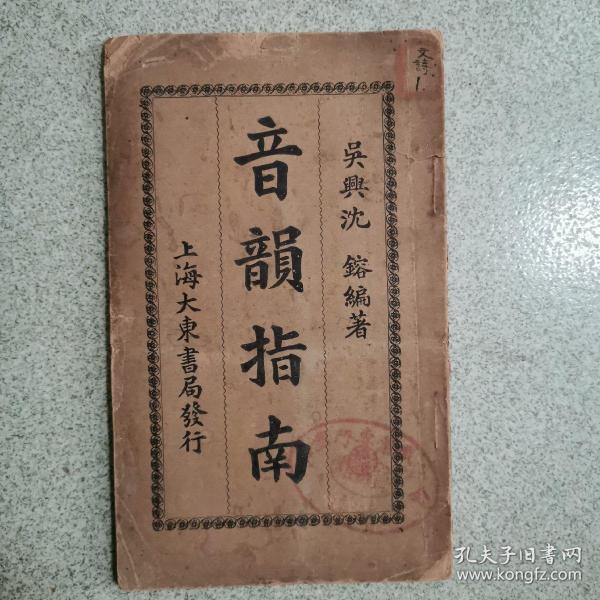 文詩
1.
吳興沈 鎔編著
音韻指南
上海大東書局發行
孔夫子旧书网
www.kongfz.com